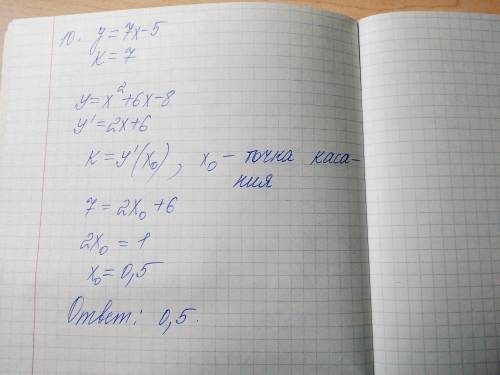 10. y = 7x-5
k = 7
y = x²+6x-8
y' = 2x+6
k = y'(x₀), x₀ - точка каса-
ния
7 = 2x₀ + 6
2x₀ = 1
x₀ = 0,5
Ответ: 0,5.